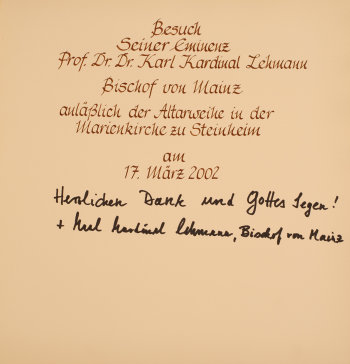 Besuch
Seiner Eminenz
Prof. Dr. Dr. Karl Kardinal Lehmann
Bischof von Mainz
anläßlich der Altarweihe in der
Marienkirche zu Steinheim
am
17. März 2002
Herzlichen Dank und Gottes Segen!
+ Karl Kardinal Lehmann, Bischof von Mainz